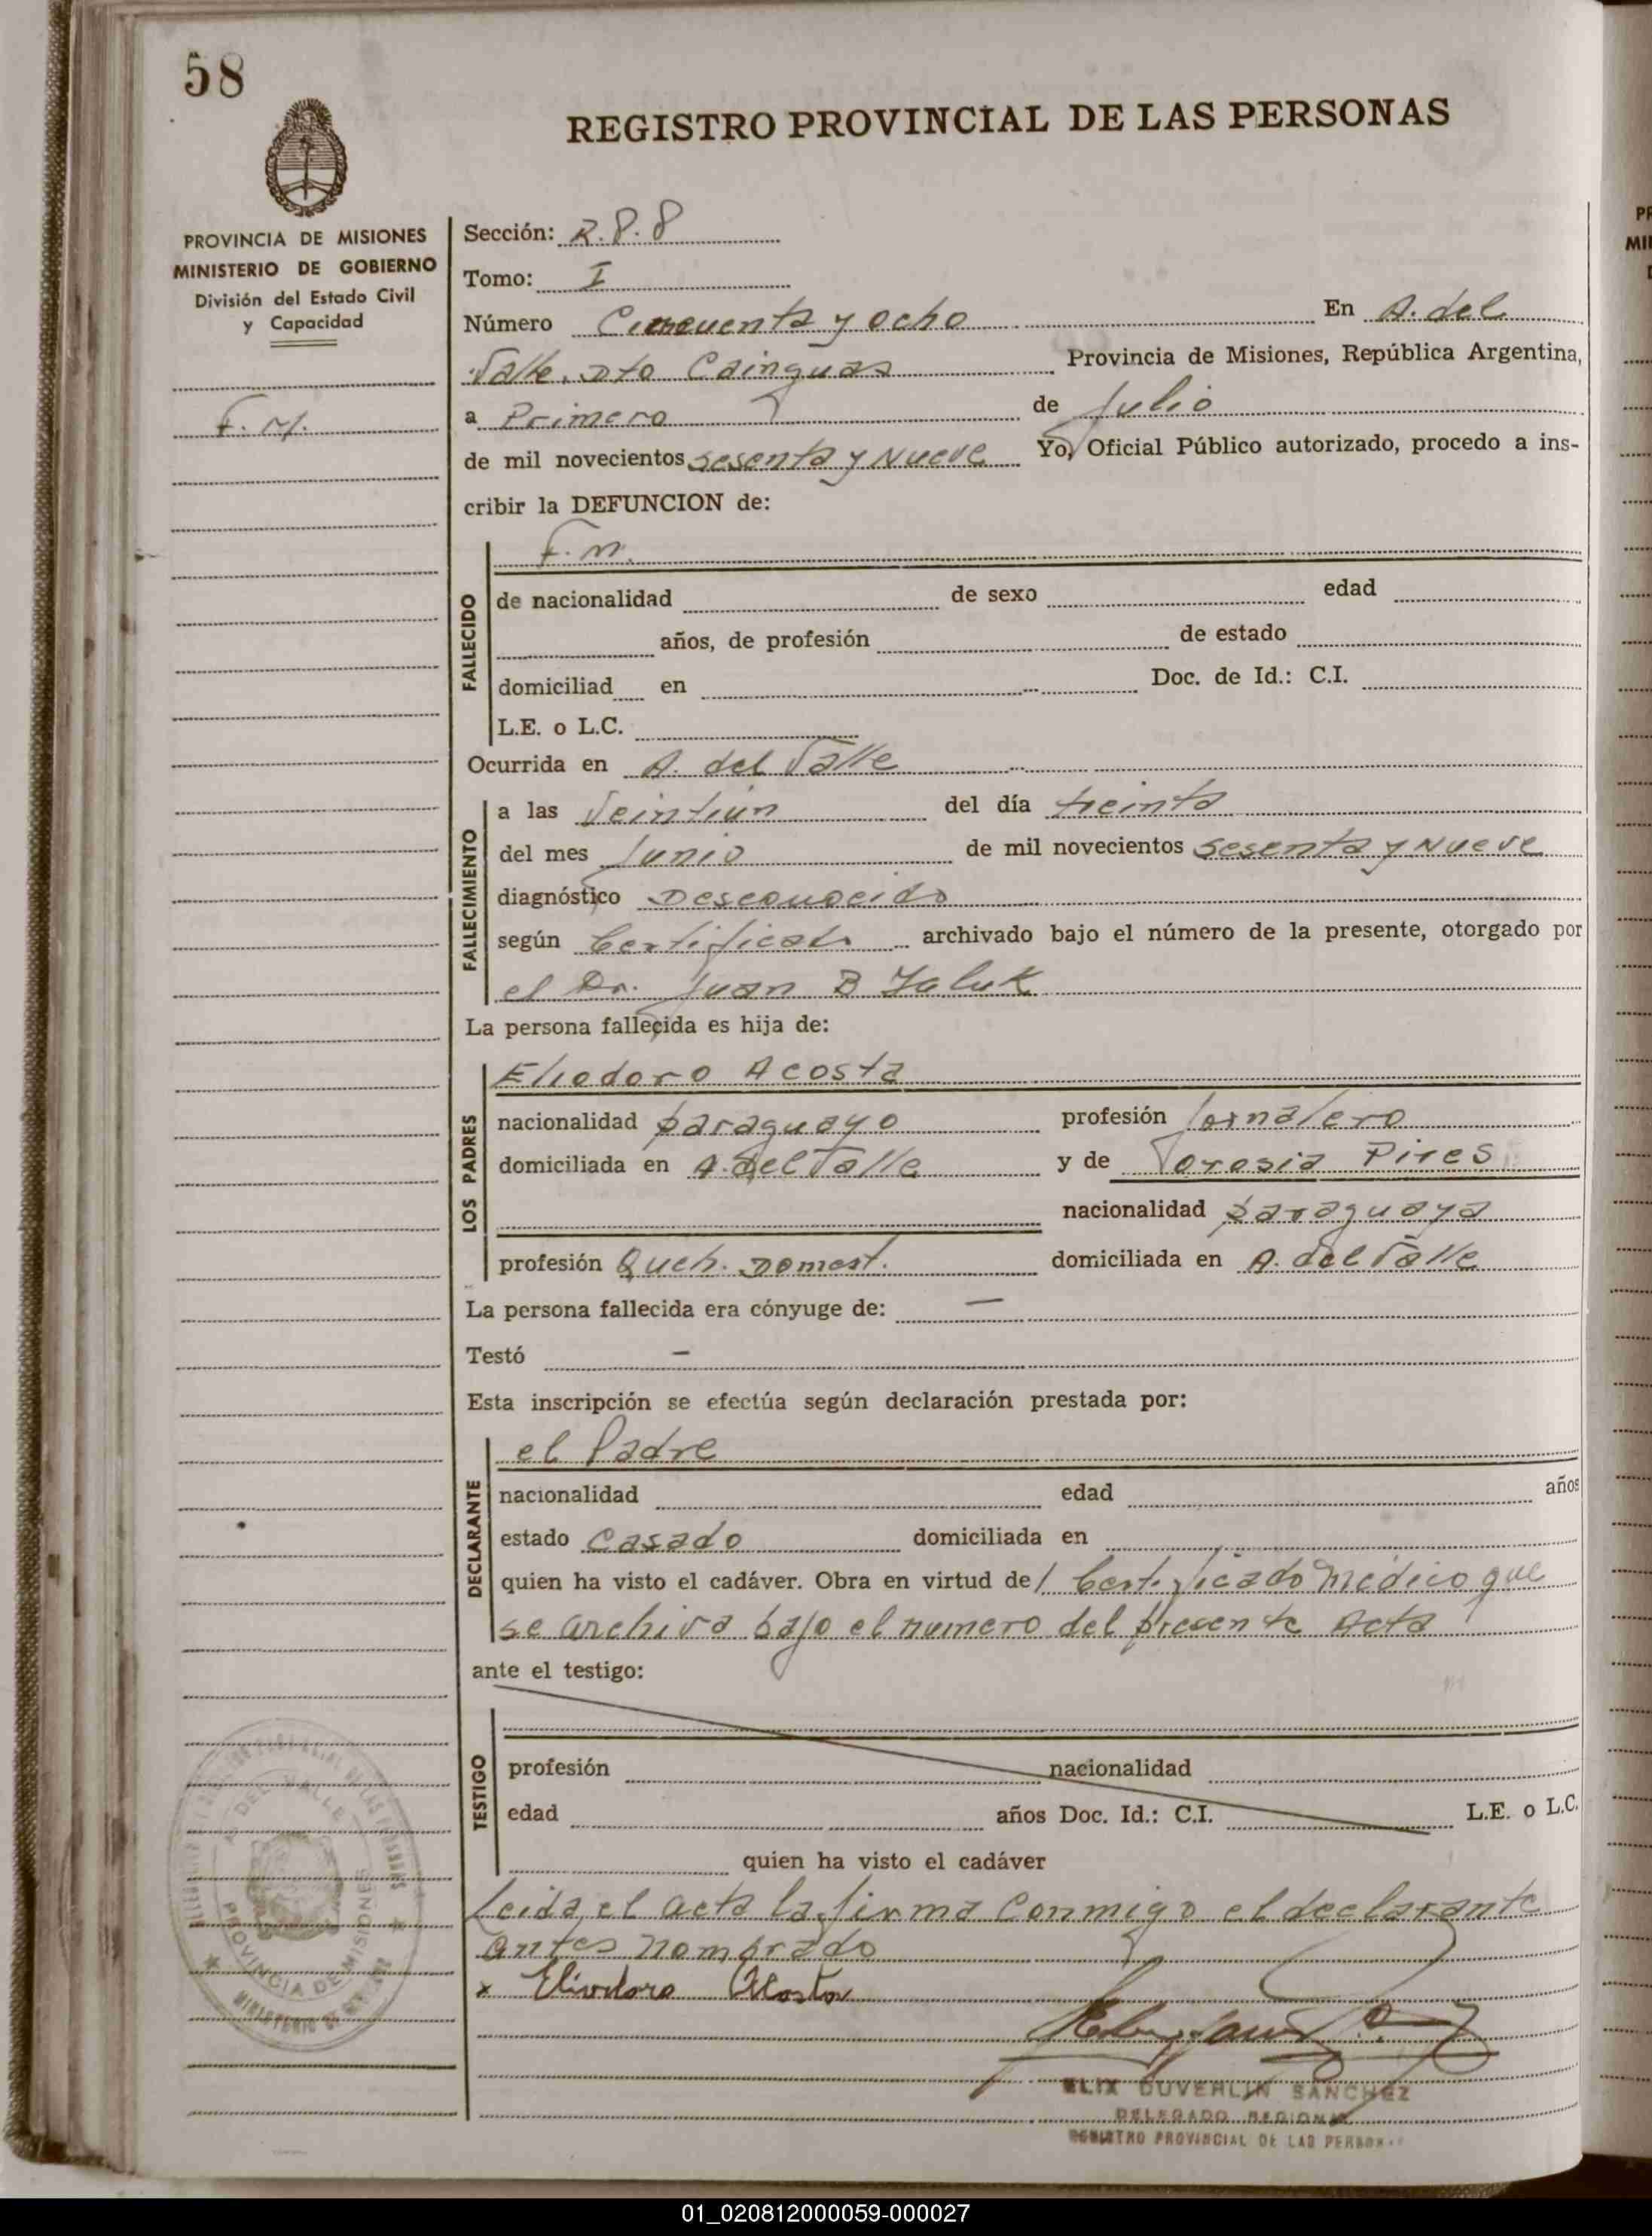 58
REGISTRO PROVINCIAL DE LAS PERSONAS
PROVINCIA DE MISIONES
MINISTERIO DE GOBIERNO
División del Estado Civil
y Capacidad
F. M.
Sección: R.P.P
Tomo: I
Número Cincuenta y ocho En A. del
Valle. Dto Cainguas Provincia de Misiones, República Argentina,
a Primero de Julio
de mil novecientos sesenta y Nueve Yo, Oficial Público autorizado, procedo a ins-
cribir la DEFUNCION de:
FALLECIDO
F. M.
de nacionalidad de sexo edad
años, de profesión de estado
domiciliad en Doc. de Id.: C.I.
L.E. o L.C.
Ocurrida en A. del Valle
FALLECIMIENTO
a las Veintiun del día treinta
del mes Junio de mil novecientos sesenta y Nueve
diagnóstico Desconocido
según Certificado archivado bajo el número de la presente, otorgado por
el Dr. Juan B
La persona fallecida es hija de:
LOS PADRES
Eliodoro Acosta
nacionalidad paraguayo profesión Jornalero
domiciliada en A. del Valle y de Torosia Pires
nacionalidad paraguaya
profesión Queh. Domest. domiciliada en A. del Valle
La persona fallecida era cónyuge de: —
Testó -
Esta inscripción se efectúa según declaración prestada por:
DECLARANTE
el Padre
nacionalidad edad años
estado Casado domiciliada en
quien ha visto el cadáver. Obra en virtud del Certificado médico que
se archiva bajo el numero del presente Acta
ante el testigo:
TESTIGO
profesión nacionalidad
edad años Doc. Id.: C.I. L.E. o L.C.
quien ha visto el cadáver
Leida el acta la firma conmigo el declarante
antes nombrado
x Eliodoro Acosta
ELIX DUVERLIN SANCHEZ
DELEGADO REGIONAL
REGISTRO PROVINCIAL DE LAS PERSON
A. DEL VALLE
PROVINCIA DE MISIONES
01_020812000059-000027